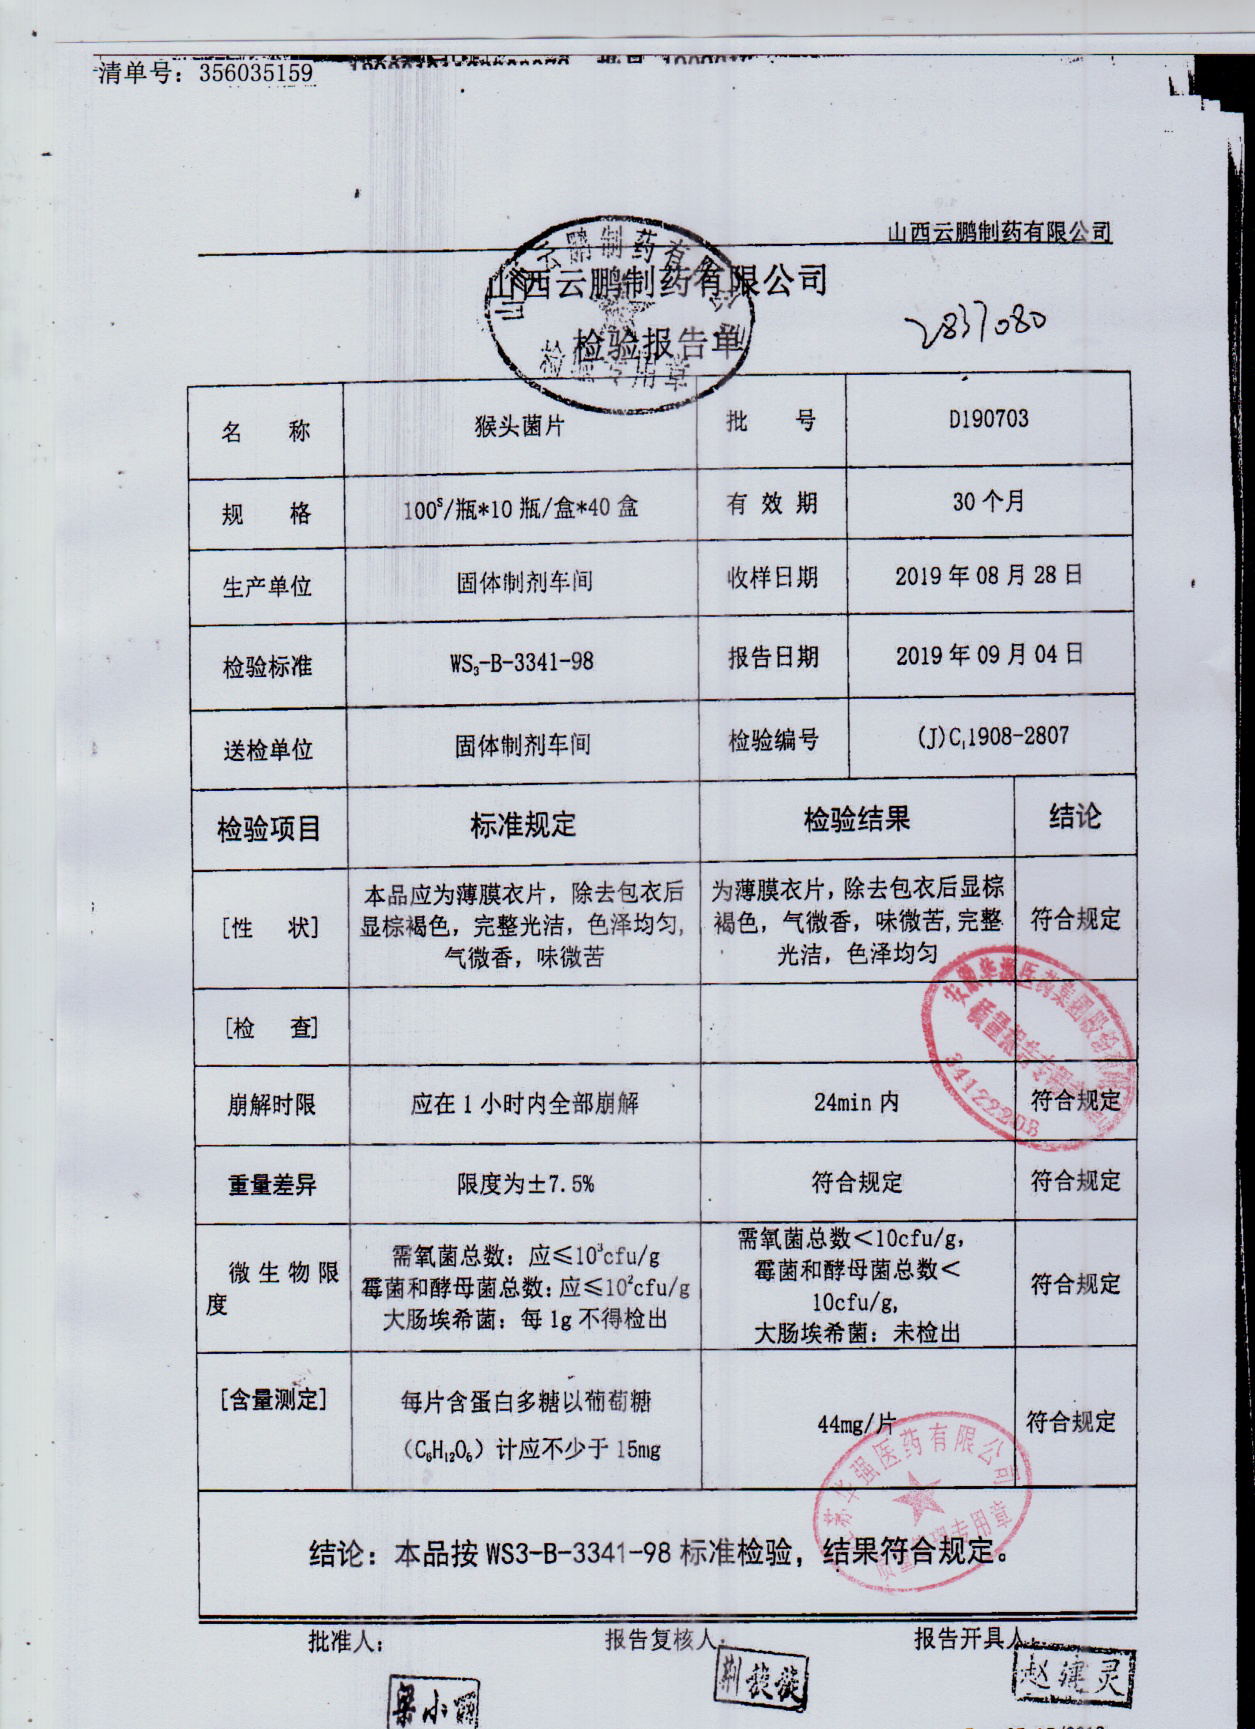 清单号：356035159
山西云鹏制药有限公司
山西云鹏制药有限公司
检验报告单
2837080
名 称 猴头菌片 批 号 D190703
规 格 100ˢ/瓶*10瓶/盒*40盒 有效期 30个月
生产单位 固体制剂车间 收样日期 2019年08月28日
检验标准 WS₃-B-3341-98 报告日期 2019年09月04日
送检单位 固体制剂车间 检验编号 (J)C₁1908-2807
检验项目 标准规定 检验结果 结论
[性 状]
本品应为薄膜衣片，除去包衣后
显棕褐色，完整光洁，色泽均匀，
气微香，味微苦
为薄膜衣片，除去包衣后显棕
褐色，气微香，味微苦，完整
光洁，色泽均匀
符合规定
[检 查]
崩解时限 应在1小时内全部崩解 24min内 符合规定
重量差异 限度为±7.5% 符合规定 符合规定
微生物限
度
需氧菌总数：应≤10³cfu/g
霉菌和酵母菌总数：应≤10²cfu/g
大肠埃希菌：每1g不得检出
需氧菌总数＜10cfu/g，
霉菌和酵母菌总数＜
10cfu/g，
大肠埃希菌：未检出
符合规定
[含量测定]
每片含蛋白多糖以葡萄糖
（C₆H₁₂O₆）计应不少于15mg
44mg/片
符合规定
结论：本品按WS3-B-3341-98标准检验，结果符合规定。
批准人： 报告复核人： 报告开具人：
梁小丽 荆璇璇 赵建灵